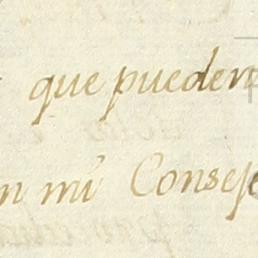 que pueden
n mi Conse